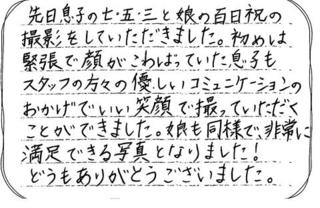 先日息子の七・五・三と娘の百日祝の
撮影をしていただきました。初めは
緊張で顔がこわばっていた息子も
スタッフの方々の優しいコミュニケーションの
おかげでいい笑顔で撮っていただく
ことができました。娘も同様で、非常に
満足できる写真となりました!
どうもありがとうございました。